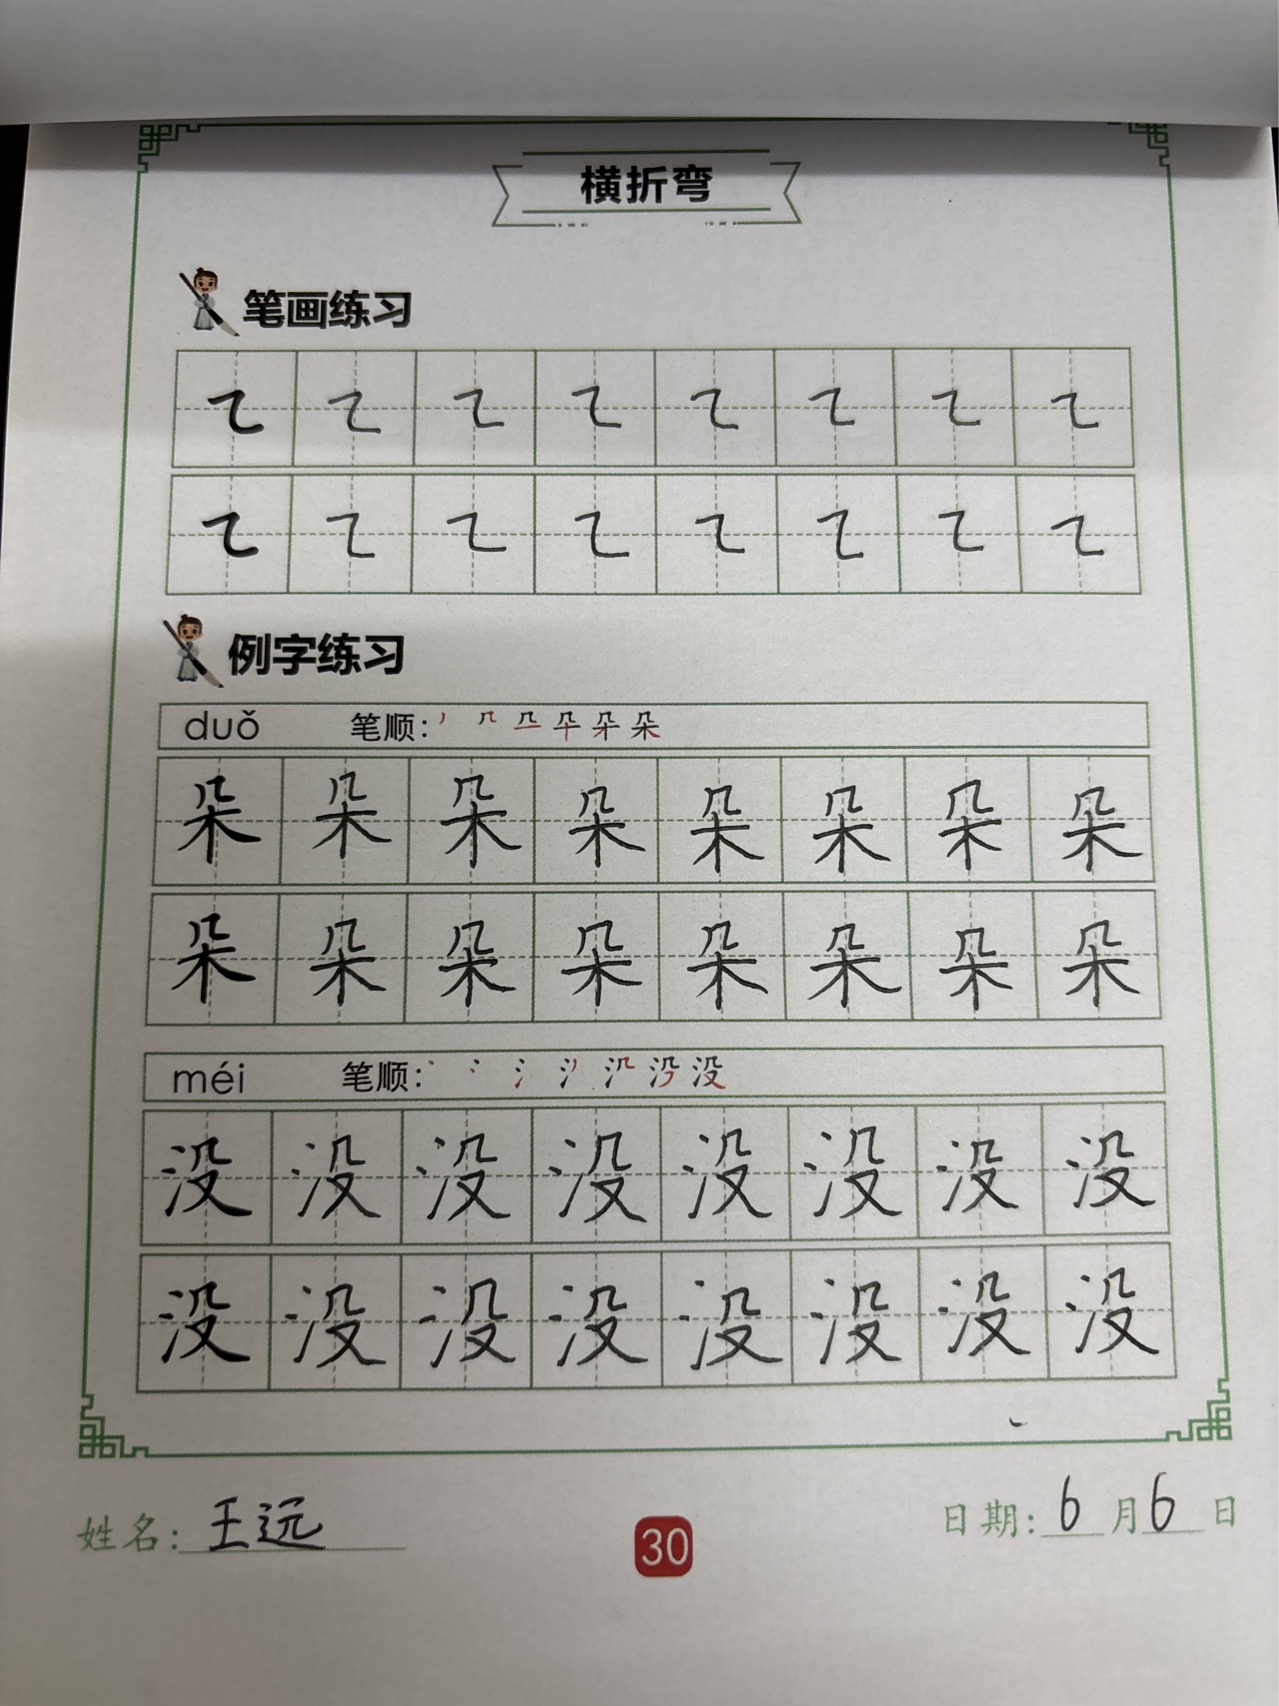 横折弯
笔画练习
㇍ ㇍ ㇍ ㇍ ㇍ ㇍ ㇍ ㇍
㇍ ㇍ ㇍ ㇍ ㇍ ㇍ ㇍ ㇍
例字练习
duǒ 笔顺: 朵
朵 朵 朵 朵 朵 朵 朵 朵
朵 朵 朵 朵 朵 朵 朵 朵
méi 笔顺: 没
没 没 没 没 没 没 没 没
没 没 没 没 没 没 没 没
姓名: 王远 30 日期: 6 月 6 日